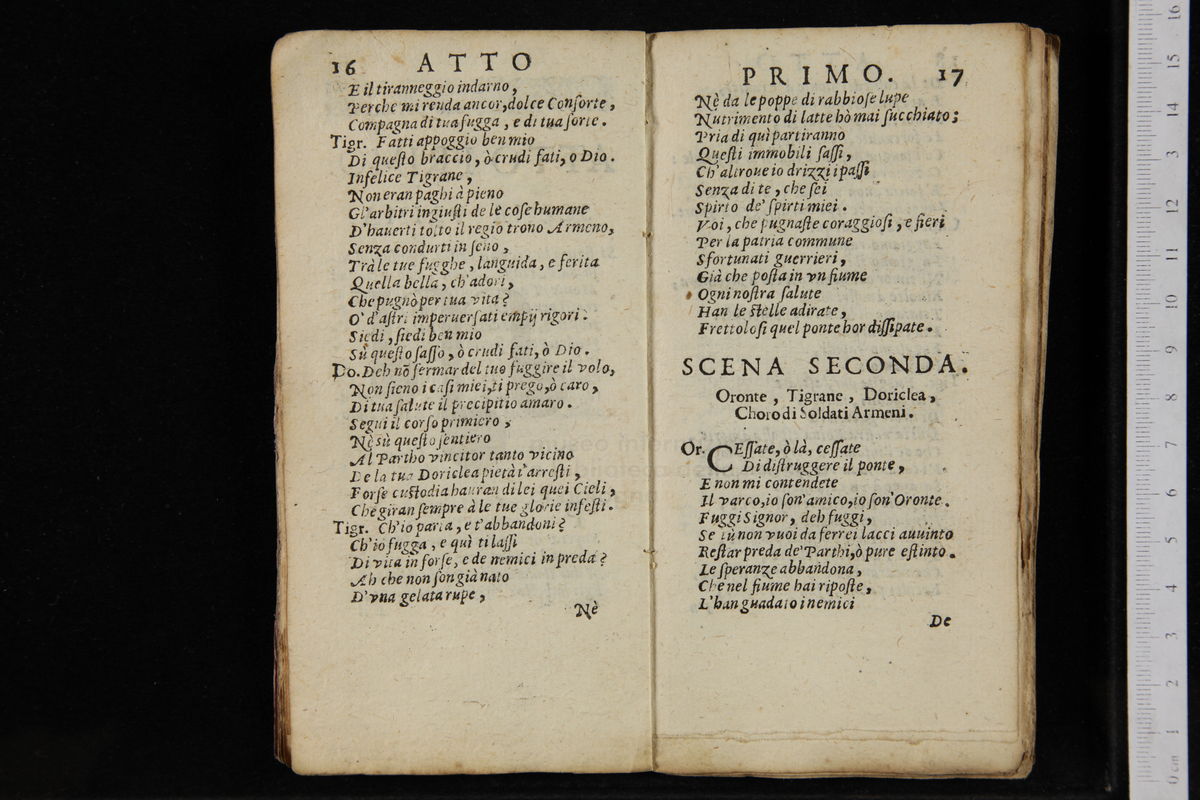 16 ATTO
E il tiranneggio indarno,
Perche mi renda ancor, dolce Conſorte,
Compagna di tua fugga, e di tua ſorte.
Tigr. Fatti appoggio ben mio
Di queſto braccio, ò crudi fati, o Dio.
Infelice Tigrane,
Non eran paghi à pieno
Gl'arbitri ingiuſti de le coſe humane
D'hauerti tolto il regio trono Armeno,
Senza condurti in ſeno,
Trà le tue fugghe, languida, e ferita
Quella bella, ch'adori,
Che pugnò per tua vita?
O' d'aſtri imperuerſati empij rigori.
Siedi, ſiedi ben mio
Sù queſto ſaſſo, ò crudi fati, ò Dio.
Do. Deh nõ fermar del tuo fuggire il volo,
Non ſieno i caſi miei, ti prego, ò caro,
Di tua ſalute il precipitio amaro.
Segui il corſo primiero,
Nè sù queſto ſentiero
Al Partho vincitor tanto vicino
De la tua Doriclea pietà t'arreſti,
Forſe cuſtodia hauran di lei quei Cieli,
Che giran ſempre à le tue glorie infeſti.
Tigr. Ch'io parta, e t'abbandoni?
Ch'io fugga, e quì ti laſſi
Di vita in forſe, e de nemici in preda?
Ah che non ſon già nato
D'vna gelata rupe,
Nè
PRIMO. 17
Nè da le poppe di rabbioſe lupe
Nutrimento di latte hò mai ſucchiato;
Pria di quì partiranno
Queſti immobili ſaſſi,
Ch'altroue io drizzi i paſſi
Senza di te, che ſei
Spirto de' ſpirti miei.
Voi, che pugnaſte coraggioſi, e fieri
Per la patria commune
Sfortunati guerrieri,
Già che poſta in vn fiume
Ogni noſtra ſalute
Han le ſtelle adirate,
Frettoloſi quel ponte hor diſſipate.
SCENA SECONDA.
Oronte, Tigrane, Doriclea,
Choro di Soldati Armeni.
Or. CEſſate, ò là, ceſſate
Di diſtruggere il ponte,
E non mi contendete
Il varco, io ſon' amico, io ſon' Oronte.
Fuggi Signor, deh fuggi,
Se tù non vuoi da ferrei lacci auuinto
Reſtar preda de' Parthi, ò pure eſtinto.
Le ſperanze abbandona,
Che nel fiume hai ripoſte,
L'han guadato i nemici
De